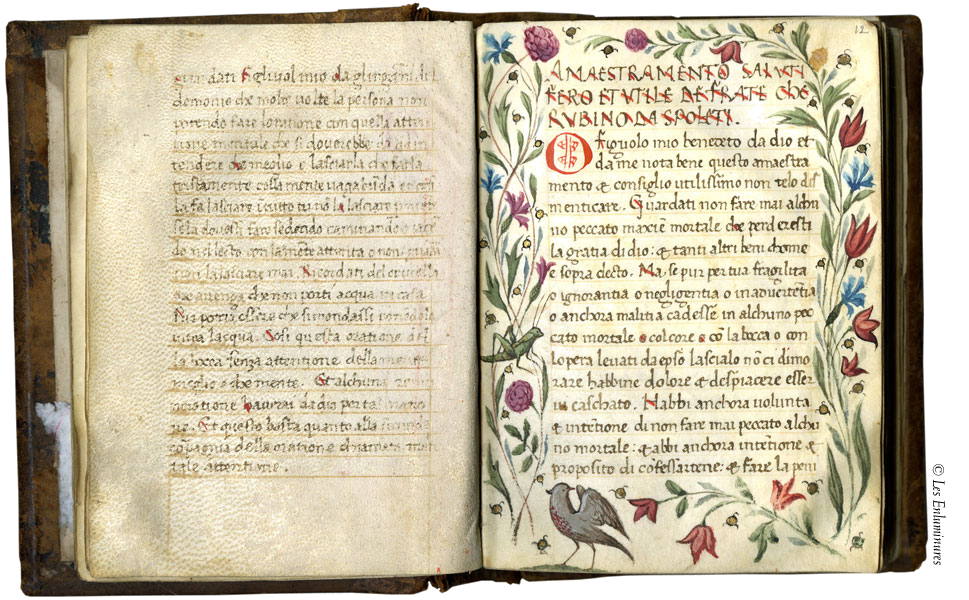 guardati figliuol mio da gli ingāni dl
demonio che molte volte la persona non
potendo fare loratione con quella atten
tione mentale che si doverebbe
tendere de meglio e lasciarla che farla
tristamente colla mente vagabūda et cosi
la fa lasciare
sela dovessi fare sedendo caminando o iacē
do nel lecto con la mēte attenta o non
non la lasciare mai. Ricordati del crivello
che avenga che non porti acqua in casa
Nō
laqua. Cosi questa oratione de
la bocca senza attentione della mente
meglio e che niente. Et alchuna
haverai da dio per tal
ne. Et questo basta quanto alla
cōpagnia della oratione chiamata men
tale attentione.
12
AMAESTRAMENTO SALUTI
FERO ET UTILE DE FRATE CHE
RUBINO DA SPOLETI.
O figuolo mio beneecto da dio et
da me nota bene questo amaestra
mento & consiglio utilissimo non telo dis
menticare. Guardati non fare mai alchu
no peccato maxīe mortale che perderesti
la gratia di dio: & tanti altri beni chome
e sopra decto. Ma se pur per tua fragilita
o ignorantia o negligentia o inadvertētia
o anchora malitia cadesse in alchuno pec
cato mortale o col core o cō la bocca o con
lopera levati da epso lascialo nō ci dimo
rare habbine dolore & despiacere esser
vi caschato. Habbi anchora volunta
& intētione di non fare mai peccato alchu
no mortale: & abbi anchora intētione &
proposito di cōfessartene: & fare la peni
© Les Enluminures